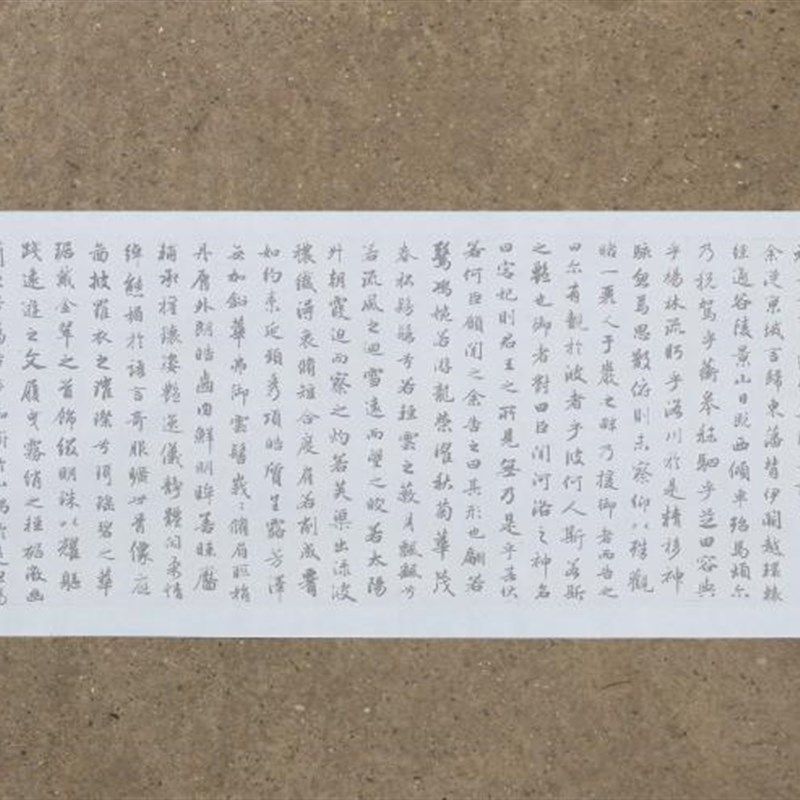 余從京域言歸東藩背伊闕越轘轅
經通谷陵景山日既西傾車殆馬煩尔
乃稅駕乎蘅皋秣駟乎芝田容與
乎楊林流眄乎洛川於是精移神
駭忽焉思散俯則未察仰以殊觀
睹一麗人于巖之畔乃援御者而告之
曰尔有覿於彼者乎彼何人斯若斯
之豔也御者對曰臣聞河洛之神名
曰宓妃則君王之所見無乃是乎其狀
若何臣願聞之余告之曰其形也翩若
驚鴻婉若游龍榮曜秋菊華茂
春松髣髴兮若輕雲之蔽月飄飖兮
若流風之迴雪遠而望之皎若太陽
升朝霞迫而察之灼若芙蕖出淥波
穠纖得衷脩短合度肩若削成腰
如約素延頸秀項皓質呈露芳澤
無加鉛華弗御雲髻峩〻脩眉聯娟
丹脣外朗皓齒內鮮明眸善睞靨
輔承權瓌姿豔逸儀靜體閑柔情
綽態媚於語言奇服曠世骨像應
圖披羅衣之璀璨兮珥瑤碧之華
琚戴金翠之首飾綴明珠以耀軀
踐遠遊之文履曳霧綃之輕裾微幽